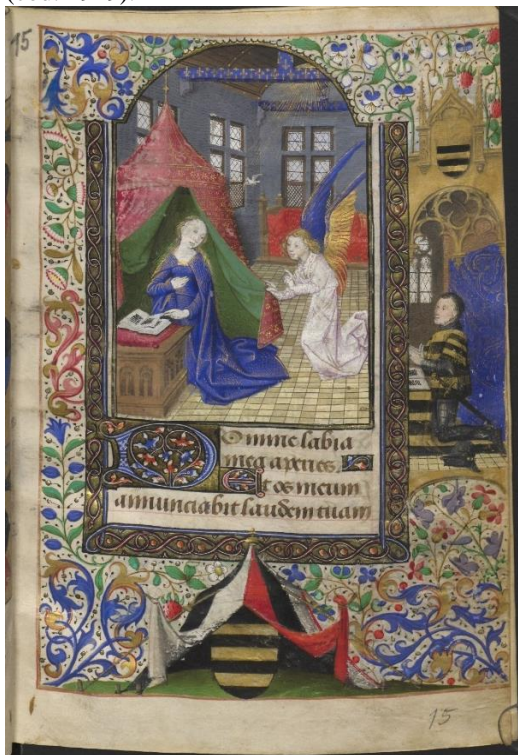 15
Domine labia
mea aperies
Et os meum
annunciabit laudem tuam
15